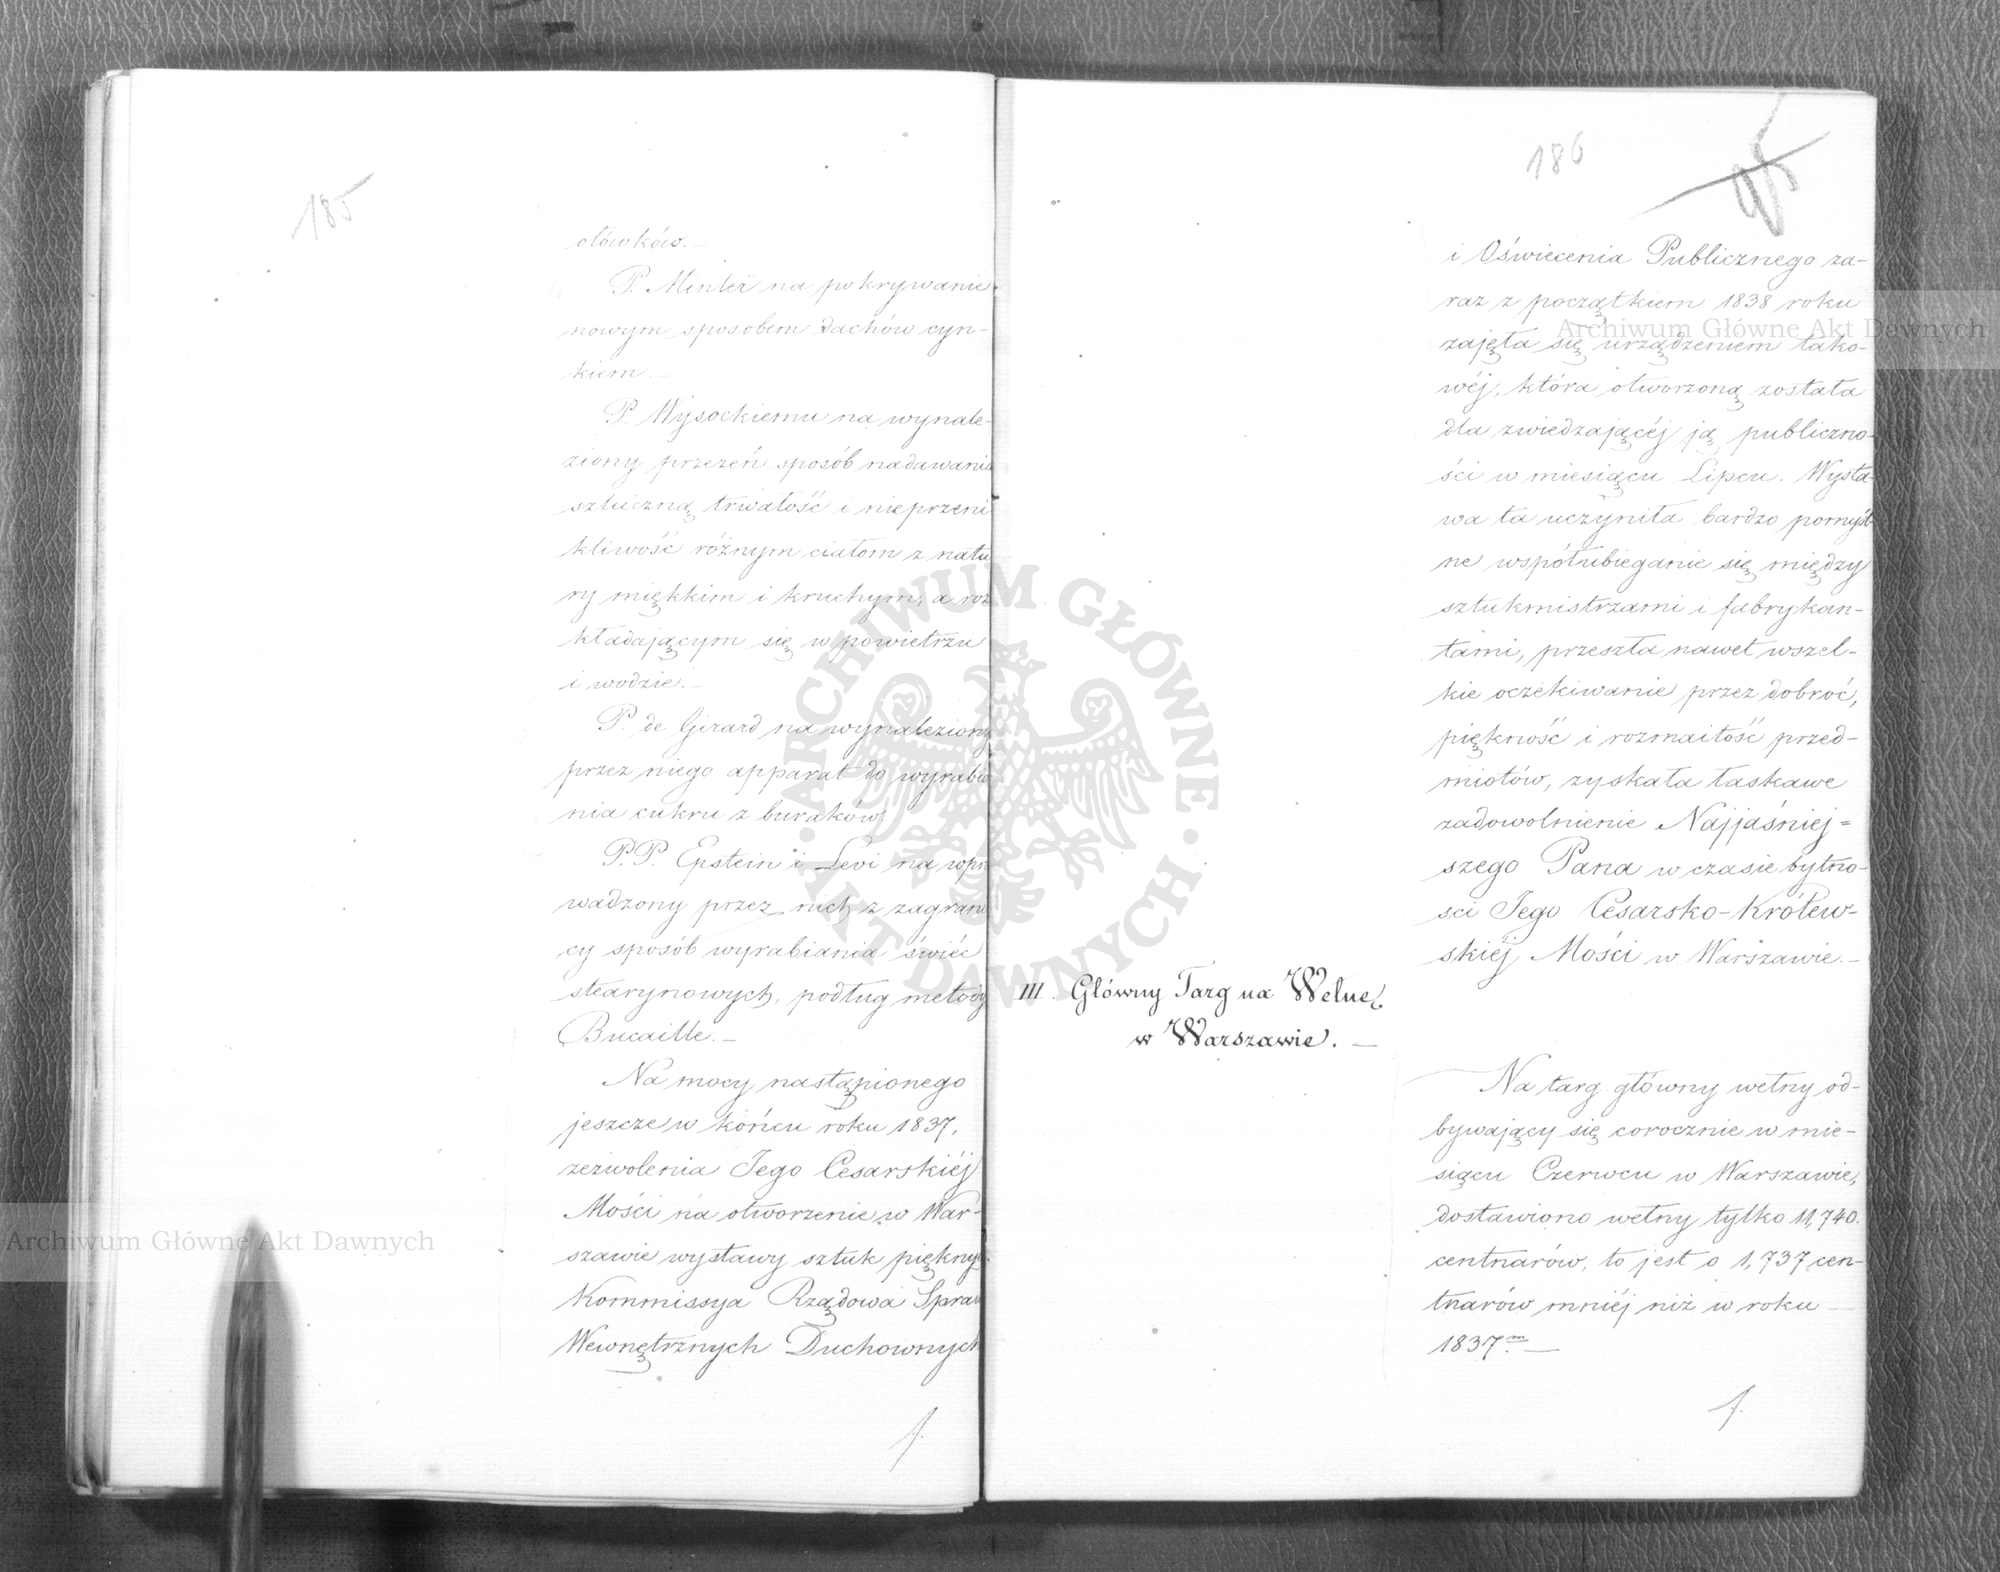 185
ołówków. —
P. Minter na pokrywanie
nowym sposobem dachów cyn-
kiem. —
P. Wysockiemu na wynale-
ziony przezeń sposób nadawania
sztuczną trwałość i nieprzeni
kliwość różnym ciałom z natu
ry miękkim i kruchym, a roz
kładającym się w powietrzu
i wodzie. —
P. de Girard na wynaleziony
przez niego apparat do wyrabia
nia cukru z buraków.
P.P. Epstein i Levi na wpro
wadzony przez nich z zagrani
cy sposób wyrabiania świéc
stearynowych, podług metody
Bucaille. —
Na mocy nastąpionego
jeszcze w końcu roku 1837,
zezwolenia Jego Cesarskiéj
Mości na otworzenie w War-
szawie wystawy sztuk pięknych
Kommissya Rządowa Spraw
Wewnętrznych Duchownych
186
i Oświecenia Publicznego za-
raz z początkiem 1838 roku
zajęła się urządzeniem tako-
wéj, która otworzoną została
dla zwiedzającéj ją publiczno-
ści w miesiącu Lipcu. Wysta
wa ta uczyniła bardzo pomyśl
ne współubieganie się między
sztukmistrzami i fabrykan-
tami, przeszła nawet wszel-
kie oczekiwanie przez dobroć,
piękność i rozmaitość przed-
miotów, zyskała łaskawe
zadowolnienie Najjaśniej=
szego Pana w czasie bytno-
sci Jego Cesarsko-Królew-
skiéj Mości w Warszawie. —
III. Główny Targ na Wełnę
w Warszawie. —
Na targ główny wełny od-
bywający się corocznie w mie-
siącu Czerwcu w Warszawie,
dostawiono wełny tylko 11,740.
centnarów, to jest o 1,737 cen-
tnarów mniéj niż w roku —
1837m. —
Archiwum Główne Akt Dawnych
Archiwum Główne Akt Dawnych
ARCHIWUM GŁÓWNE · AKT DAWNYCH ·